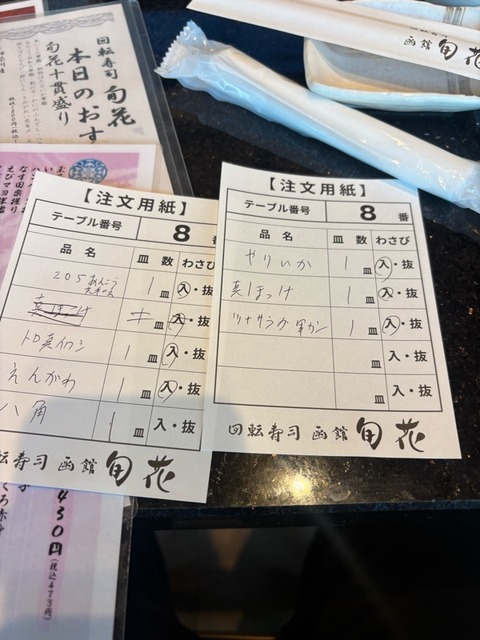 回転寿司 旬花
本日のおす
旬花十貫盛り
函館 旬花
【注文用紙】
テーブル番号 8
品名 皿数 わさび
205あんこう
1皿 入・抜
真ほっけ 皿 入・抜
トロ真イワシ 1皿 入・抜
えんがわ 1皿 入・抜
八角 1皿 入・抜
回転寿司 函館 旬花
【注文用紙】
テーブル番号 8番
品名 皿数 わさび
やりいか 1皿 入・抜
真ほっけ 1皿 入・抜
ツナサラダ軍カン 1皿 入・抜
皿 入・抜
皿 入・抜
回転寿司 函館 旬花
430円(税込473円)